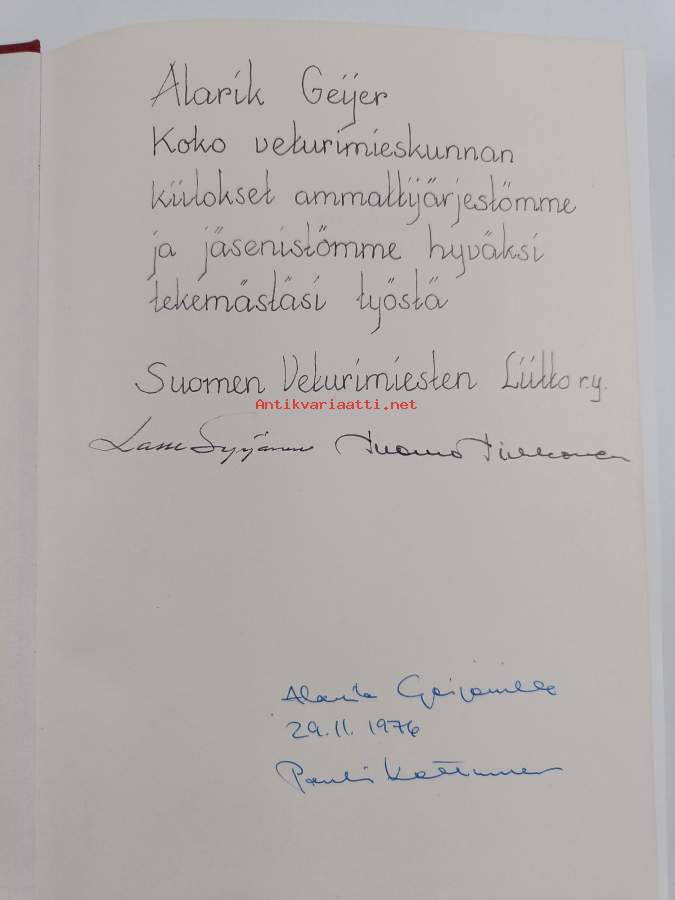 Alarik Geijer
Koko veturimieskunnan
kiitokset ammattijärjestömme
ja jäsenistömme hyväksi
tekemästäsi työstä
Suomen Veturimiesten Liitto r.y.
Antikvariaatti.net
Lasse Syrjänen Tuomo Tirkkonen
Alarik Geijerille
29.11.1976
Pauli Kettunen